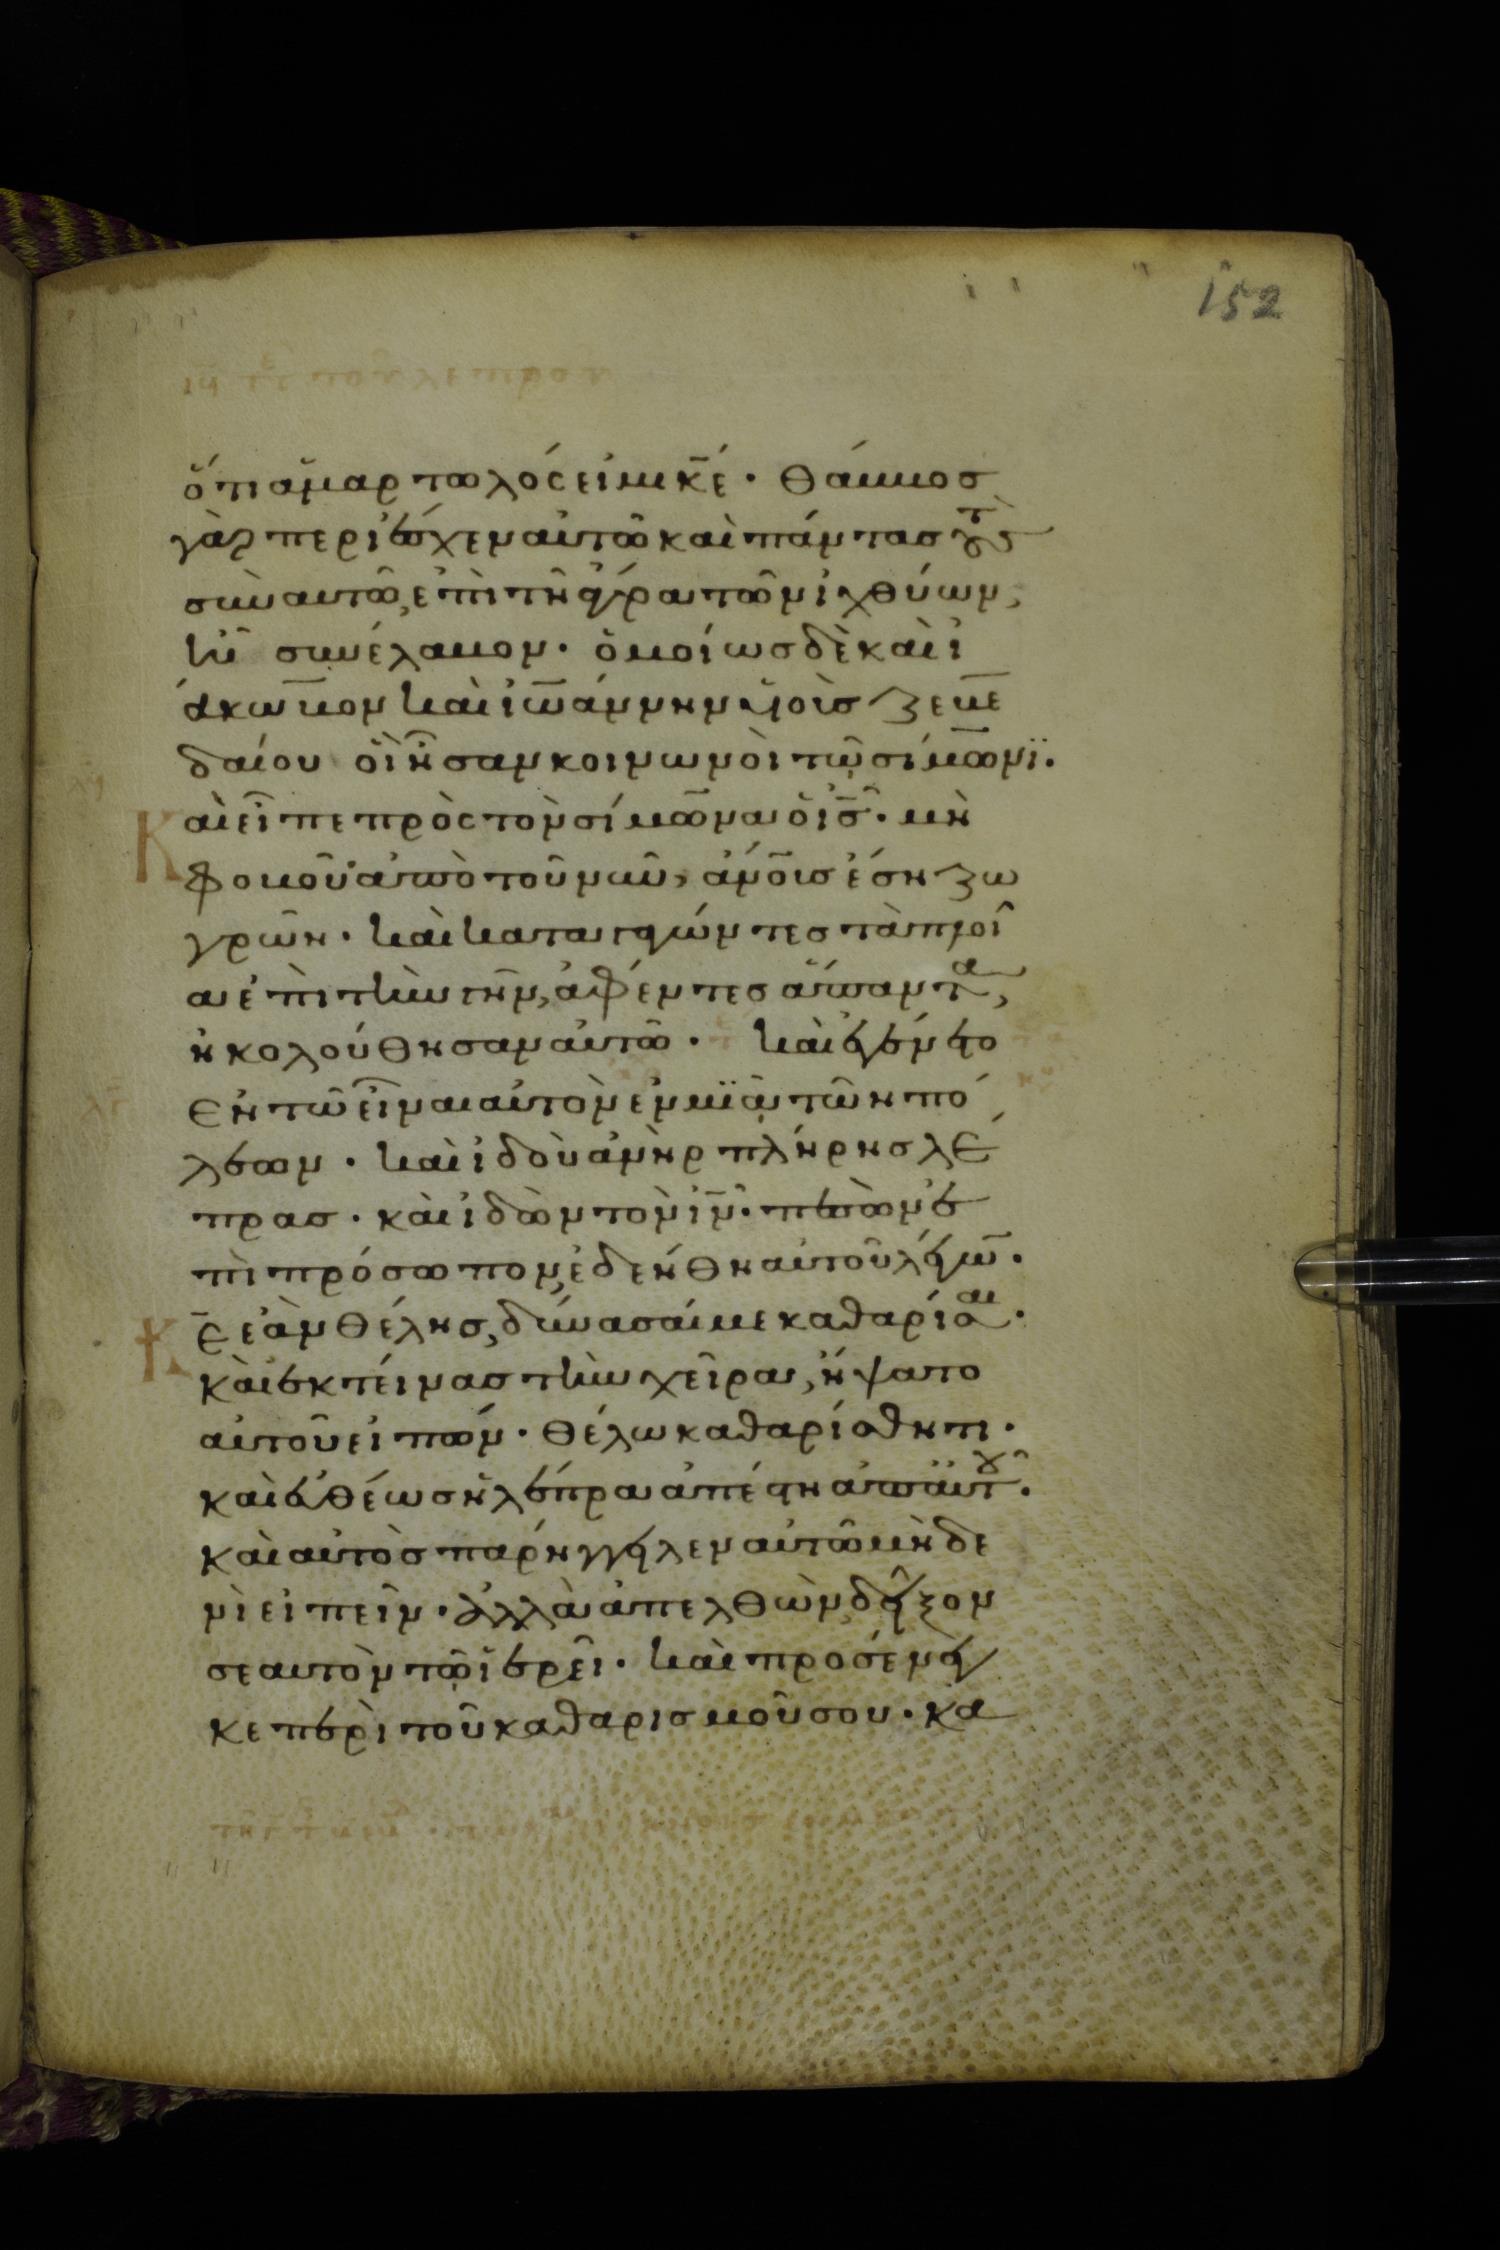 152
ιη πε του λεπρου
ὅτι ἁμαρτωλός εἰμι κ̅ε̅· θάμβος
γὰρ περιέσχεν αὐτῶ καὶ πάντας τοὺς
σὺν αὐτῶ, ἐπὶ τῆ ἄγρα τῶν ἰχθύων,
ἧ συνέλαβον· ὁμοίως δὲ καὶ ἰ
άκωβον καὶ ἰωάννην υἱοὺς ζεβε
δαίου οἳ ἦσαν κοινωνοὶ τῷ σίμωνϊ·
Κ
αὶ εἶπε πρὸς τὸν σίμωνα ὁ ι̅ς̅· μὴ
φοβοῦ ἀπὸ τοῦ νῦν, ἀνο̅υς ἔση ζω
γρῶν· καὶ καταγαγόντες τὰ πλοῖ
α ἐπὶ τὴν γῆν, ἀφέντες ἅπαντα,
ἠκολούθησαν αὐτῶ· καὶ ἐγένετο
ἐν τῶ εἶναι αὐτὸν ἐν μϊᾷ τῶν πό
λεων· καὶ ἰδοὺ ἀνὴρ πλήρης λέ
πρας· καὶ ἰδὼν τὸν ι̅ν̅· πεσὼν ἐ
πὶ πρόσωπον, ἐδεήθη αὐτοῦ λέγων·
Κ
ε̅ ἐὰν θέλης, δύνασαί με καθαρίσαι·
καὶ ἐκτείνας τὴν χεῖρα, ἥψατο
αὐτοῦ εἰπών· θέλω καθαρίσθητι·
καὶ εὐθέως ἡ λέπρα ἀπέστη ἀπ' αὐτοῦ·
καὶ αὐτὸς παρήγγειλεν αὐτῶ μηδε
νὶ εἰπεῖν· ἀλλὰ ἀπελθὼν δεῖξον
σεαυτὸν τῷ ἱερεῖ· καὶ προσένεγ
κε περὶ τοῦ καθαρισμοῦ σου· κα